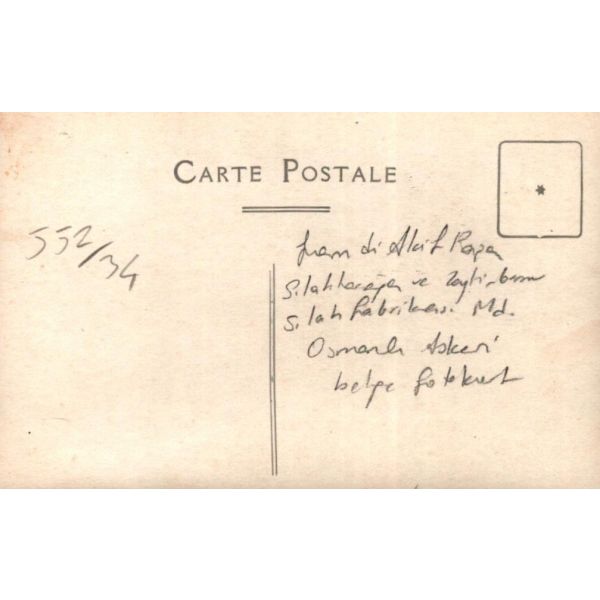 CARTE POSTALE
552/34
di Akif Paşa
Silahtarağa ve Zeytinburnu
Silah Fabrikası Md.
Osmanlı Askeri
belge fotokart